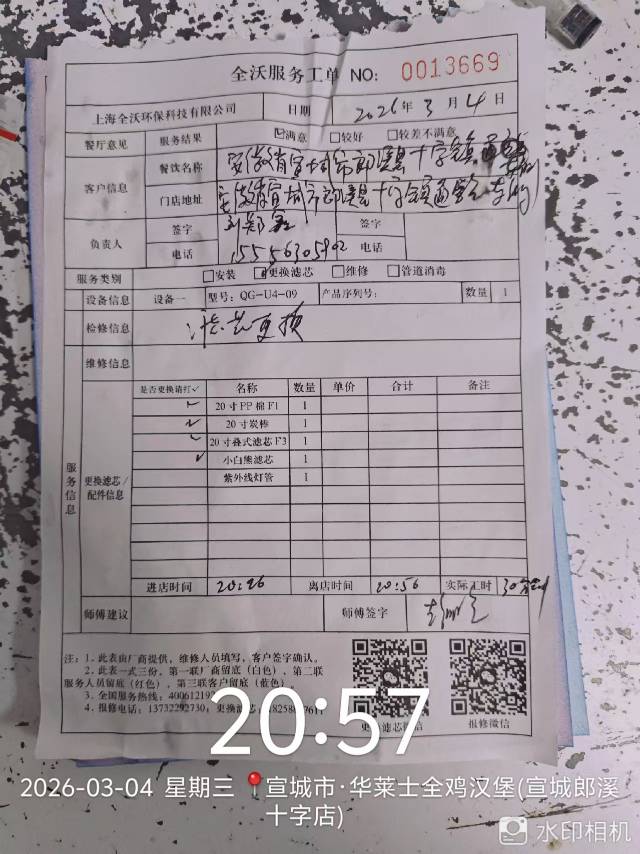 全沃服务工单 NO: 0013669
上海全沃环保科技有限公司 日期 2026年 3月 4日
餐厅意见 服务结果 ☑满意 □较好 □较差不满意
客户信息 餐饮名称 安徽省宣城市郎溪县十字镇
门店地址 安徽省宣城市郎溪县十字镇
负责人 签字 签字
电话 15556305902 电话
服务类别 □安装 ☑更换滤芯 □维修 □管道消毒
设备信息 设备一 型号: QG-U4-09 产品序列号: 数量 1
检修信息 滤芯更换
维修信息
服务信息 更换滤芯/配件信息
是否更换请打✓ 名称 数量 单价 合计 备注
✓ 20寸PP棉F1 1
✓ 20寸炭棒 1
✓ 20寸叠式滤芯F3 1
✓ 小白熊滤芯 1
紫外线灯管 1
进店时间 20:26 离店时间 20:56 实际工时 30分钟
师傅建议 师傅签字
注: 1. 此表由厂商提供, 维修人员填写, 客户签字确认。
2. 此表一式三份, 第一联厂商留底(白色), 第二联
服务人员留底(红色), 第三联客户留底(蓝色)。
3. 全国服务热线: 40061219
4. 报修电话: 13732292730; 更换滤芯:
更换滤芯微信 报修微信
20:57
2026-03-04 星期三 📍宣城市·华莱士全鸡汉堡(宣城郎溪
十字店)
水印相机